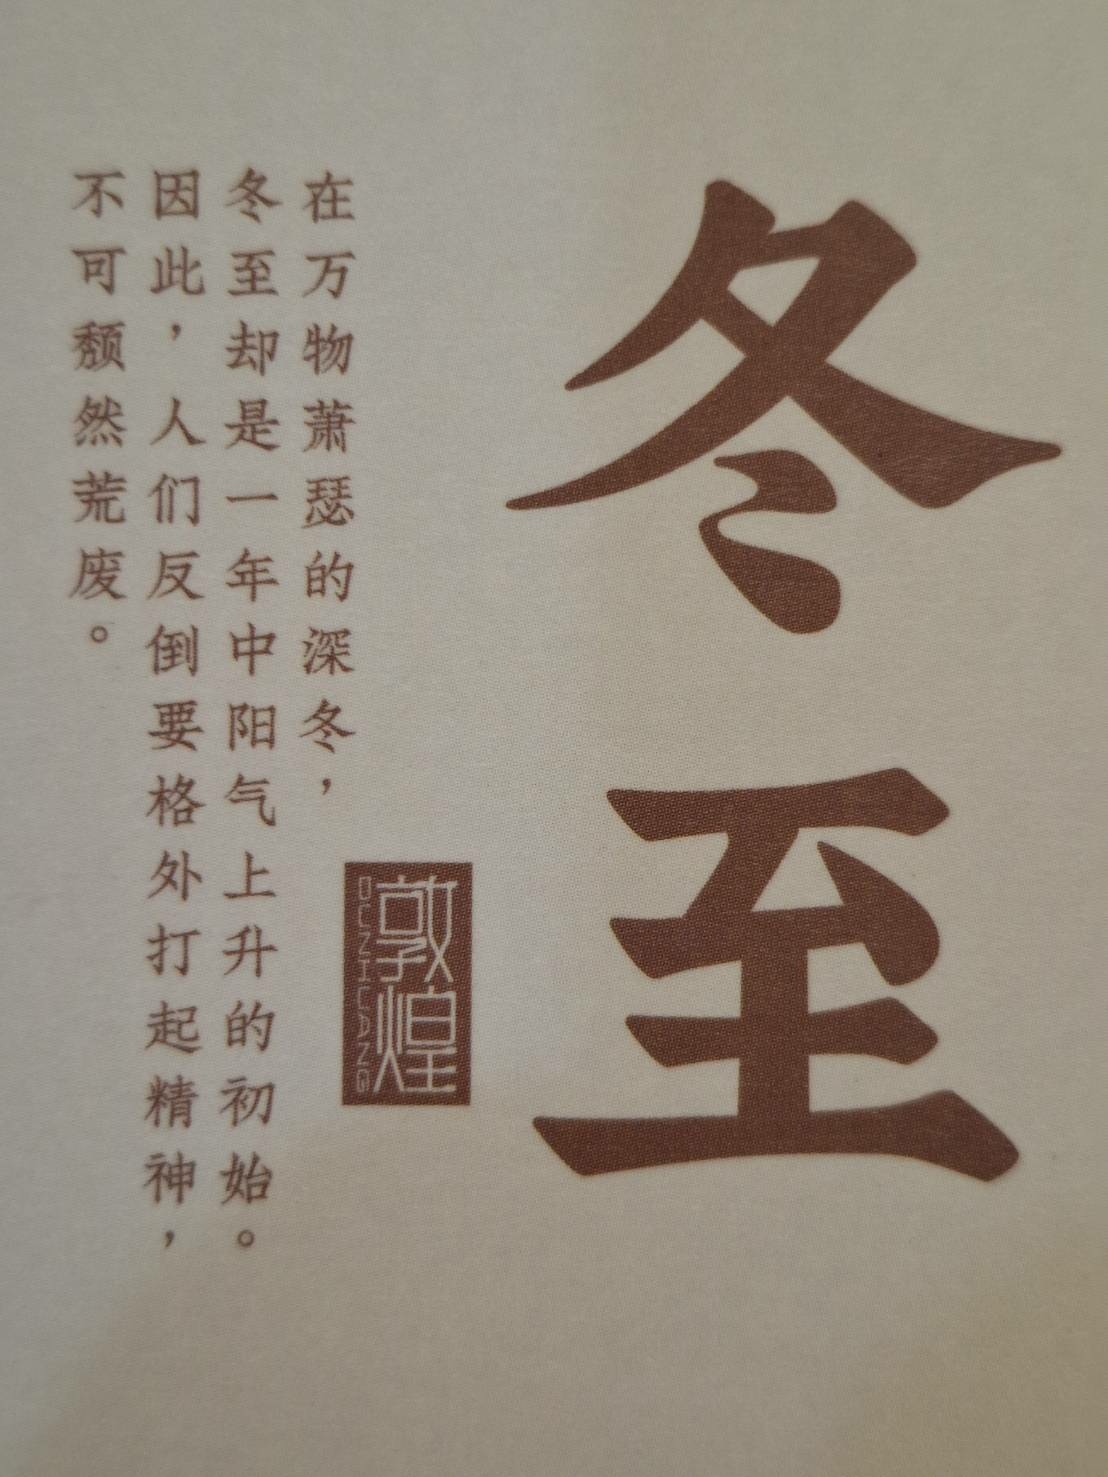 冬至
敦煌
DUNHUANG
在万物萧瑟的深冬，
冬至却是一年中阳气上升的初始。
因此，人们反倒要格外打起精神，
不可颓然荒废。